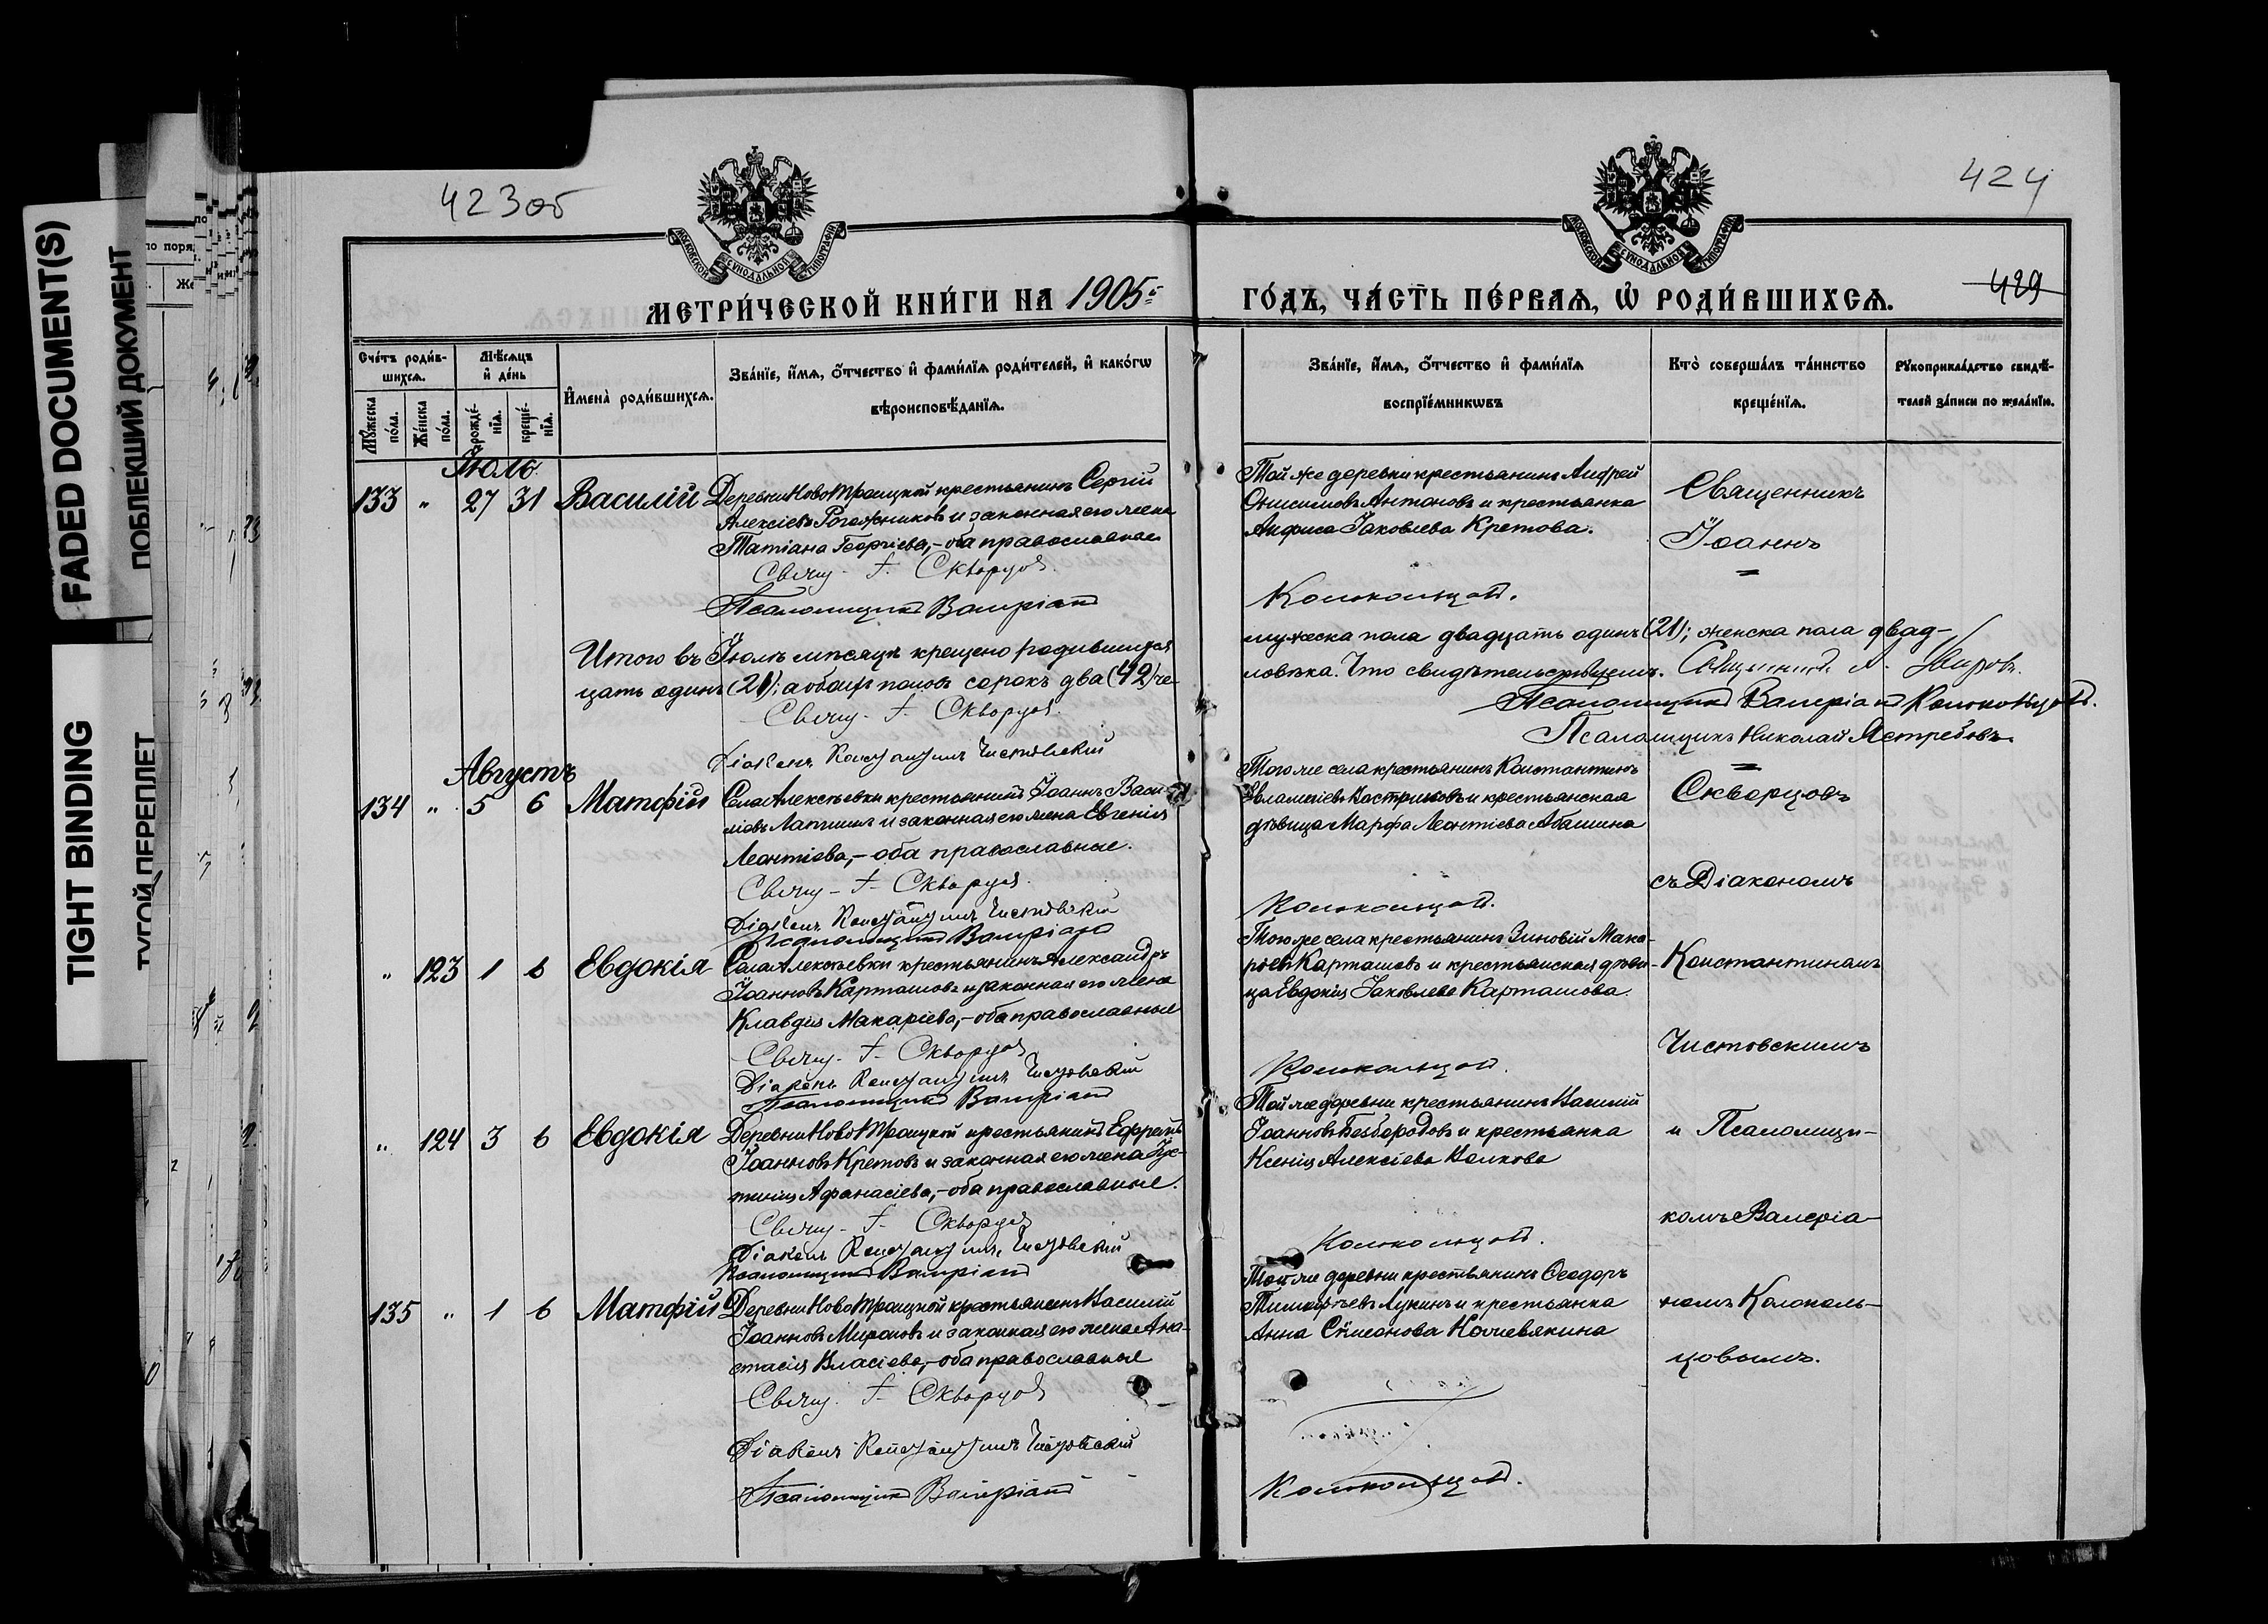 FADED DOCUMENT(S)
ПОБЛЕКШИЙ ДОКУМЕНТ
TIGHT BINDING
ТУГОЙ ПЕРЕПЛЕТ
423об
424
МОСКОВСКОЙ СУНОДАЛЬНОЙ ТИПОГРАФІИ
МОСКОВСКОЙ СУНОДАЛЬНОЙ ТИПОГРАФІИ
429
МЕТРИ́ЧЕСКОЙ КНИ́ГИ НА 1905й
ГО́ДЪ, ЧА́СТЬ ПЕ́РВАѦ, Ѡ҆ РОДИ́ВШИХСѦ.
Сче́тъ роди́в-
шихсѧ.
Мꙋ́жеска по́ла.
Же́нска по́ла.
Мѣ́сѧцъ
и҆ де́нь
рожде́-
нїѧ.
креще́-
нїѧ.
И҆мена̀ роди́вшихсѧ.
Зва́нїе, и҆́мѧ, ѻ҆́тчество и҆ фами́лїѧ роди́телей, и҆ како́гѡ
вѣроисповѣ́данїѧ.
Зва́нїе, и҆́мѧ, ѻ҆́тчество и҆ фами́лїѧ
воспрїе́мникѡвъ
Кто̀ соверша́лъ та́инство
креще́нїѧ.
Рꙋкоприкла́дство свидѣ́-
телей за́писи по жела́нїю.
Іюль
133 " 27 31 Василій
Деревни Ново Троицкой крестьянинъ Сергій
Алексіевъ Рогожниковъ и законная его жена
Татіана Георгіева,-оба православные
Свящ. І. Скворцовъ
Псаломщикъ Валеріанъ
Той же деревни крестьянинъ Андрей
Онисимовъ Антоновъ и крестьянка
Анфиса Іаковлева Кретова.
Колокольцовъ.
Священникъ
Іоаннъ
Итого въ Іюлѣ мѣсяцѣ крещено родившихся
мужеска пола двадцать одинъ (21); женска пола двад-
цать одинъ (21); а обоихъ половъ сорокъ два (42) че-
ловѣка. Что свидѣтельствуемъ. Священникъ
Свящ. І. Скворцовъ
Псаломщикъ Валеріанъ Колокольцовъ.
Діаконъ Константинъ Чистовскій
Псаломщикъ Николай Ястребовъ.
Августъ
134 " 5 6 Матфій
Села Алексѣевки крестьянинъ Іоаннъ Васи-
ліевъ Лапшинъ и законная его жена Евгенія
Леонтіева,-оба православные.
Свящ. І. Скворцовъ
Діаконъ Константинъ Чистовскій
Псаломщикъ Валеріанъ
Того же села крестьянинъ Константинъ
Евлампіевъ и крестьянская
дѣвица Марфа Леонтіева Абашина
Колокольцовъ.
Скворцовъ
съ Діакономъ
" 123 1 6 Евдокія
Села Алексѣевки крестьянинъ Александръ
Іоанновъ Карташовъ и законная его жена
Клавдія Макаріева,-оба православные
Свящ. І. Скворцовъ
Діаконъ Константинъ Чистовскій
Псаломщикъ Валеріанъ
Того же села крестьянинъ Зиновій Мака-
ріевъ Карташовъ и крестьянская дѣви-
ца Евдокія Іаковлева Карташова.
Колокольцовъ.
Константиномъ
Чистовскимъ
" 124 3 6 Евдокія
Деревни Ново Троицкой крестьянинъ Ефремъ
Іоанновъ Кретовъ и законная его жена Іус-
тинія Афанасіева,-оба православные.
Свящ. І. Скворцовъ
Діаконъ Константинъ Чистовскій
Псаломщикъ Валеріанъ
Той же деревни крестьянинъ Василій
Іоанновъ Безбородовъ и крестьянка
Ксенія Алексіева Волкова
Колокольцовъ.
и Псаломщи-
комъ Валеріа-
135 " 1 6 Матфій
Деревни Ново Троицкой крестьянинъ Василій
Іоанновъ Мироновъ и законная его жена Ана-
стасія Власіева,-оба православные
Свящ. І. Скворцовъ
Діаконъ Константинъ Чистовскій
Псаломщикъ Валеріанъ
Той же деревни крестьянинъ Ѳеодоръ
Лукинъ и крестьянка
Анна Сѵмеонова
Колокольцовъ.
номъ Колоколь-
цовымъ.